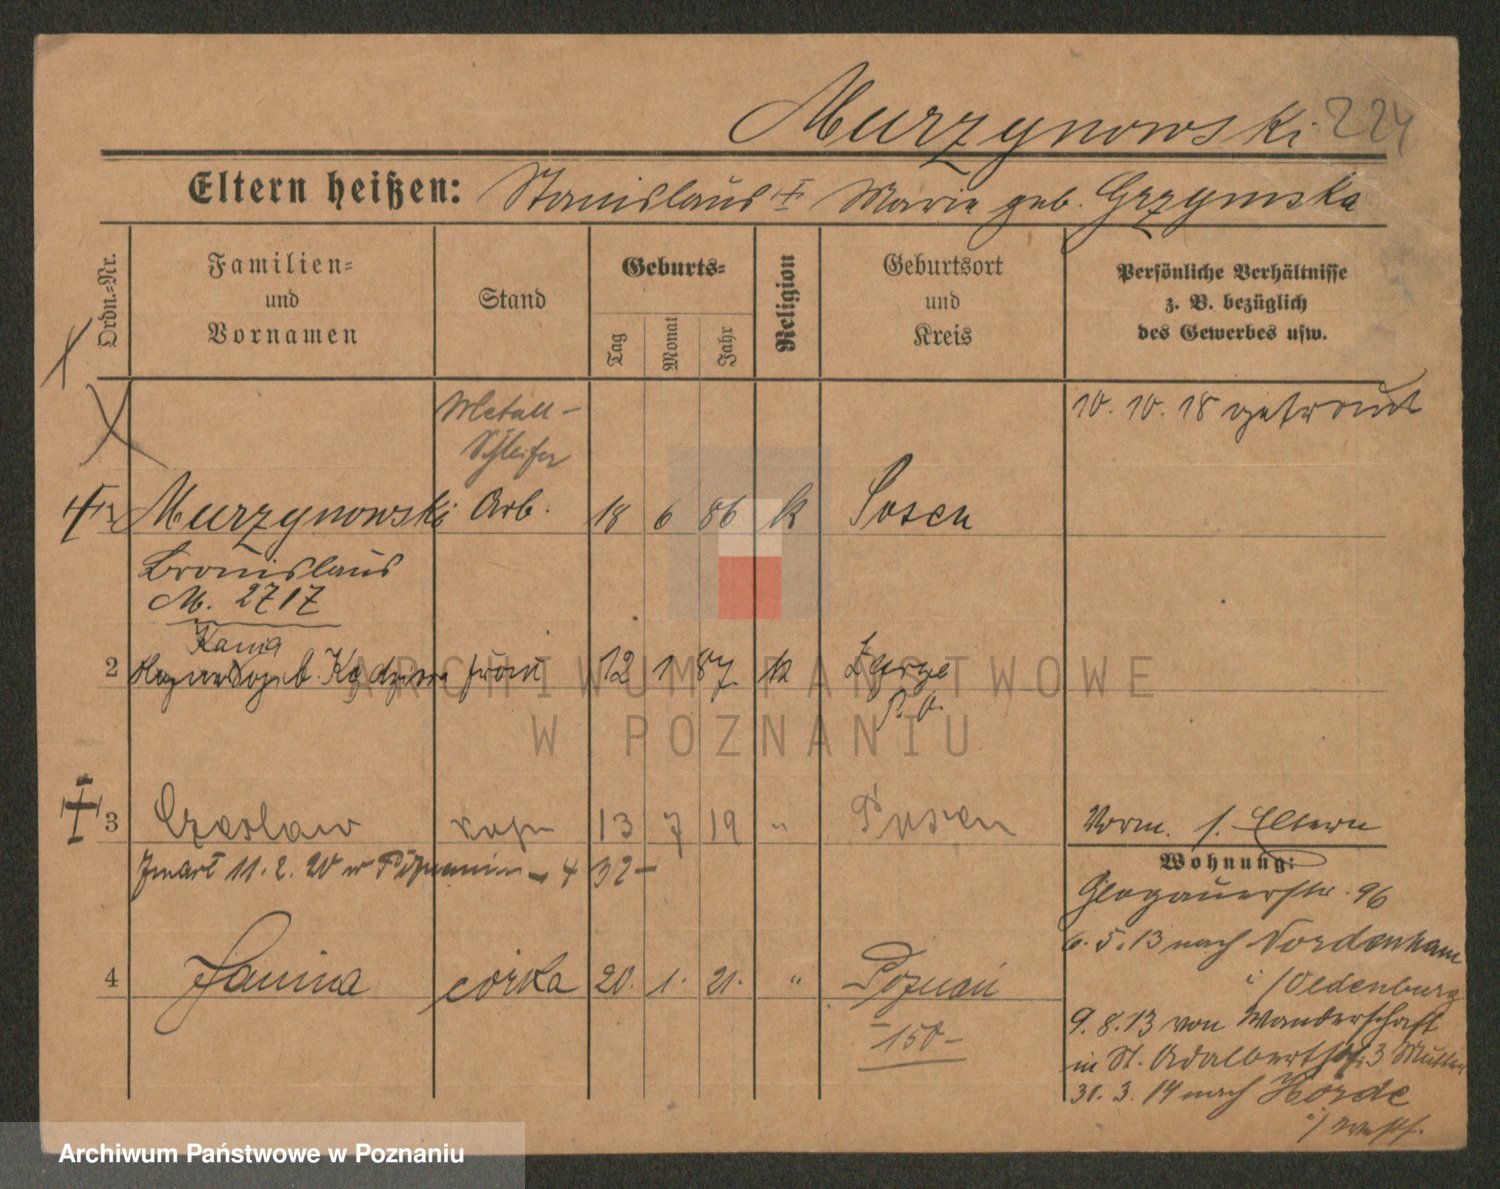 Murzynowski 224
Eltern heißen: Stanislaus † Marie geb. Grzymska
Ordn.-Nr.
Familien-
und
Vornamen
Stand
Geburts-
Tag
Monat
Jahr
Religion
Geburtsort
und
Kreis
Persönliche Verhältnisse
z. B. bezüglich
des Gewerbes usw.
Metall-
Schleifer
10. 10. 18 getraut
1 Murzynowski Arb. 18 6 86 k Posen
Bronislaus
M. 2717
Kania
2 geb. frau 12 1 87 k
P. O.
3 Czeslaw 13 7 19 " Posen
Vorm. s. Eltern
zmarł 11. 2. 20 w Poznaniu - 4 32 -
Wohnung:
Glogauerstr. 96
6. 5. 13 nach Nordenham
i/Oldenburg
4 Janina córka 20. 1. 21. " Poznań
- 150 -
9. 8. 13 von Wanderschaft
in St. Adalbertstr. 3 Mutter
31. 3. 14 nach Hörde
i/ Westf.
ARCHIWUM PAŃSTWOWE
W POZNANIU
Archiwum Państwowe w Poznaniu